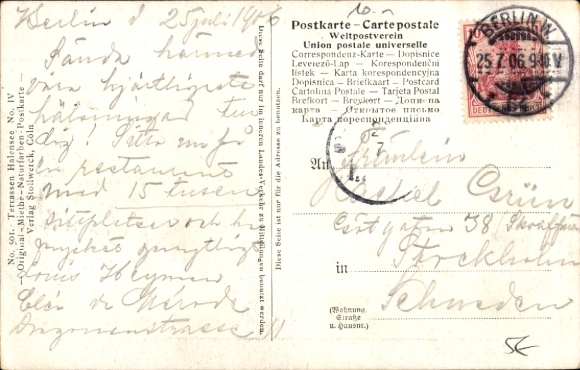 Berlin d 25 juli 1906
Sända härmed
våra hjärtligaste
hälsningar till
dig! Sitta nu på
en restaurant
med 15 tusen
sittplatser och ha
mycket gemytligt
Heyman
Cléo de Mérode
No. 501. Terrassen Halensee No. IV
— Original-Miethe-Naturfarben-Postkarte —
Verlag Stollwerck, Cöln
Diese Seite darf nur im inneren Landes-Verkehr zu Mitteilungen benutzt werden.
Diese Seite ist nur für die Adresse zu benutzen.
Postkarte - Carte postale
Weltpostverein
Union postale universelle
Correspondenz-Karte — Dopisnice
Levelező-Lap — Korespondenční
lístek — Karta korespondencyjna
Dopisnica — Briefkaart — Postcard
Cartolina Postale — Tarjeta Postal
Brefkort — Brevkort — Дописна
карта — Открытое письмо
Карта корреспонденційна
BERLIN W.
25.7.06.9-10V.
An Fräulein
Östgötagatan 38
in Stockholm
Schweden
(Wohnung
Straße
u. Hausnr.)
5€